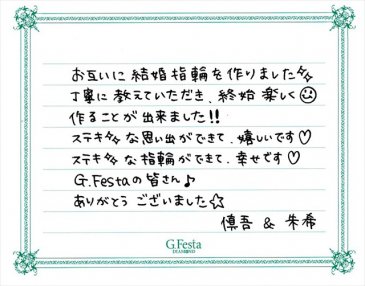 お互いに結婚指輪を作りました✨
丁寧に教えていただき、終始楽しく☺
作ることが出来ました!!
ステキ✨な思い出ができて、嬉しいです♡
ステキ✨な指輪ができて、幸せです♡
G.Festaの皆さん♪
ありがとうございました☆
慎吾 & 朱希
G.Festa
DIAMOND